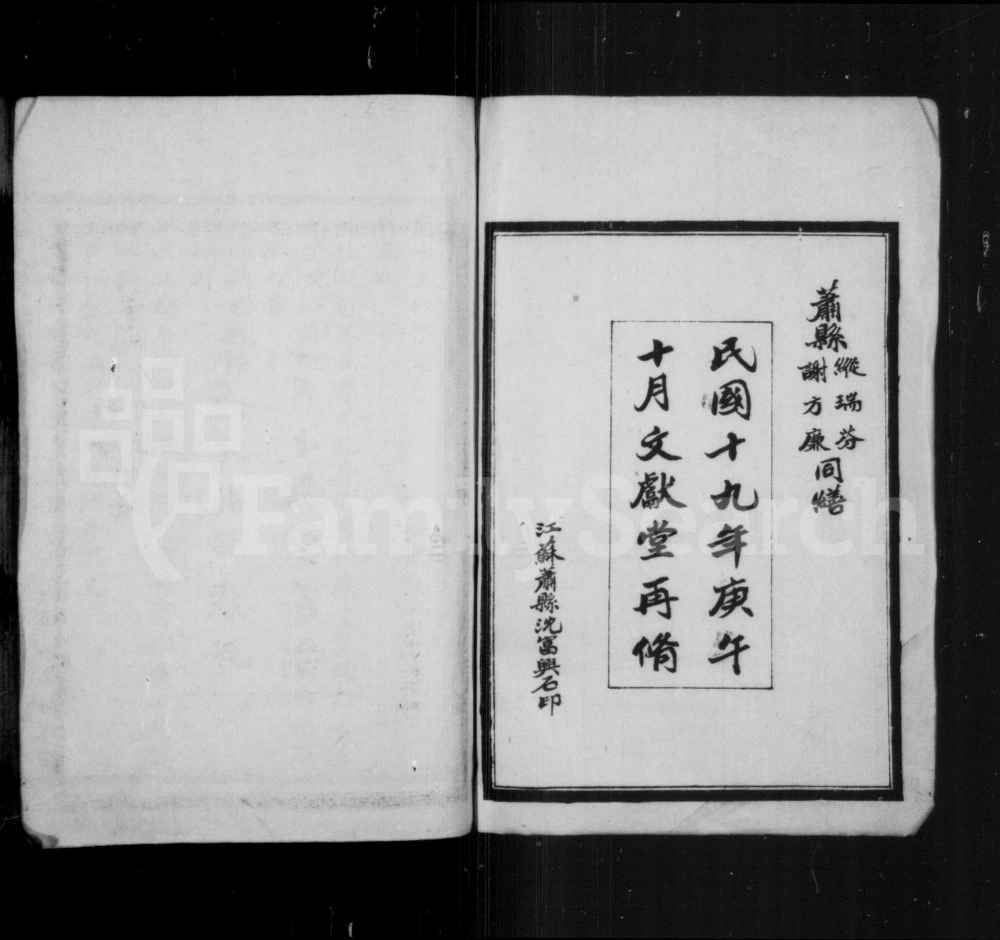 蕭縣縱瑞芬謝方廉同繕
民國十九年庚午
十月文獻堂再脩
江蘇蕭縣沈富興石印
FamilySearch